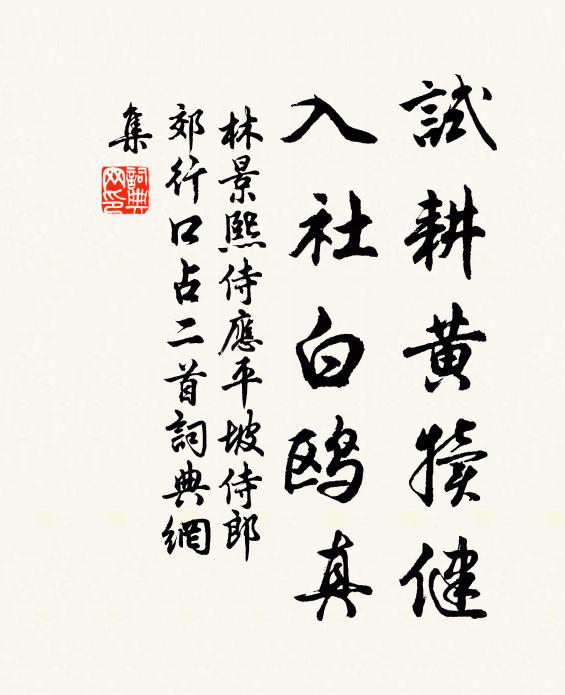 試耕黃犢健
入社白鷗真
林景熙侍應平坡侍郎
郊行口占二首詞典網
集
詞典网印